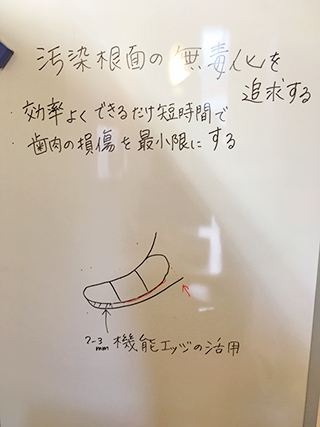 汚染根面の無毒化を
追求する
・効率よくできるだけ短時間で
・歯肉の損傷を最小限にする
2-3
mm
機能エッジの活用